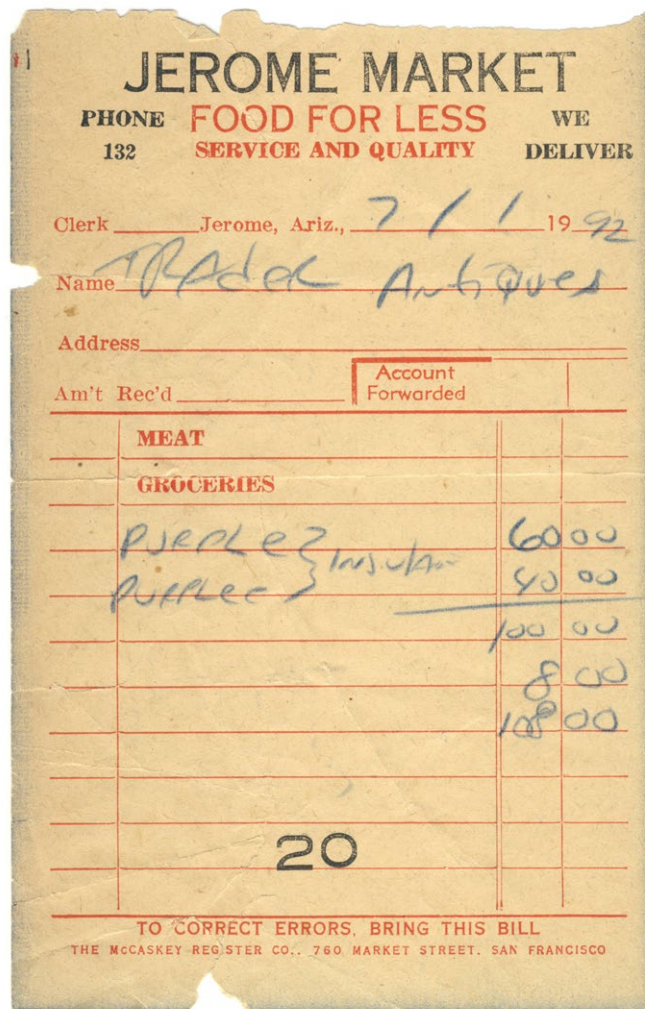 JEROME MARKET
PHONE 132 FOOD FOR LESS WE DELIVER
SERVICE AND QUALITY
Clerk Jerome, Ariz., 7 / 1 19 92
Name Antiques
Address
Am't Rec'd Account Forwarded
MEAT
GROCERIES
PURPLE } Insula 60 00
PURPLE 40 00
100 00
8 00
108 00
20
TO CORRECT ERRORS, BRING THIS BILL
THE McCASKEY REGISTER CO., 760 MARKET STREET, SAN FRANCISCO